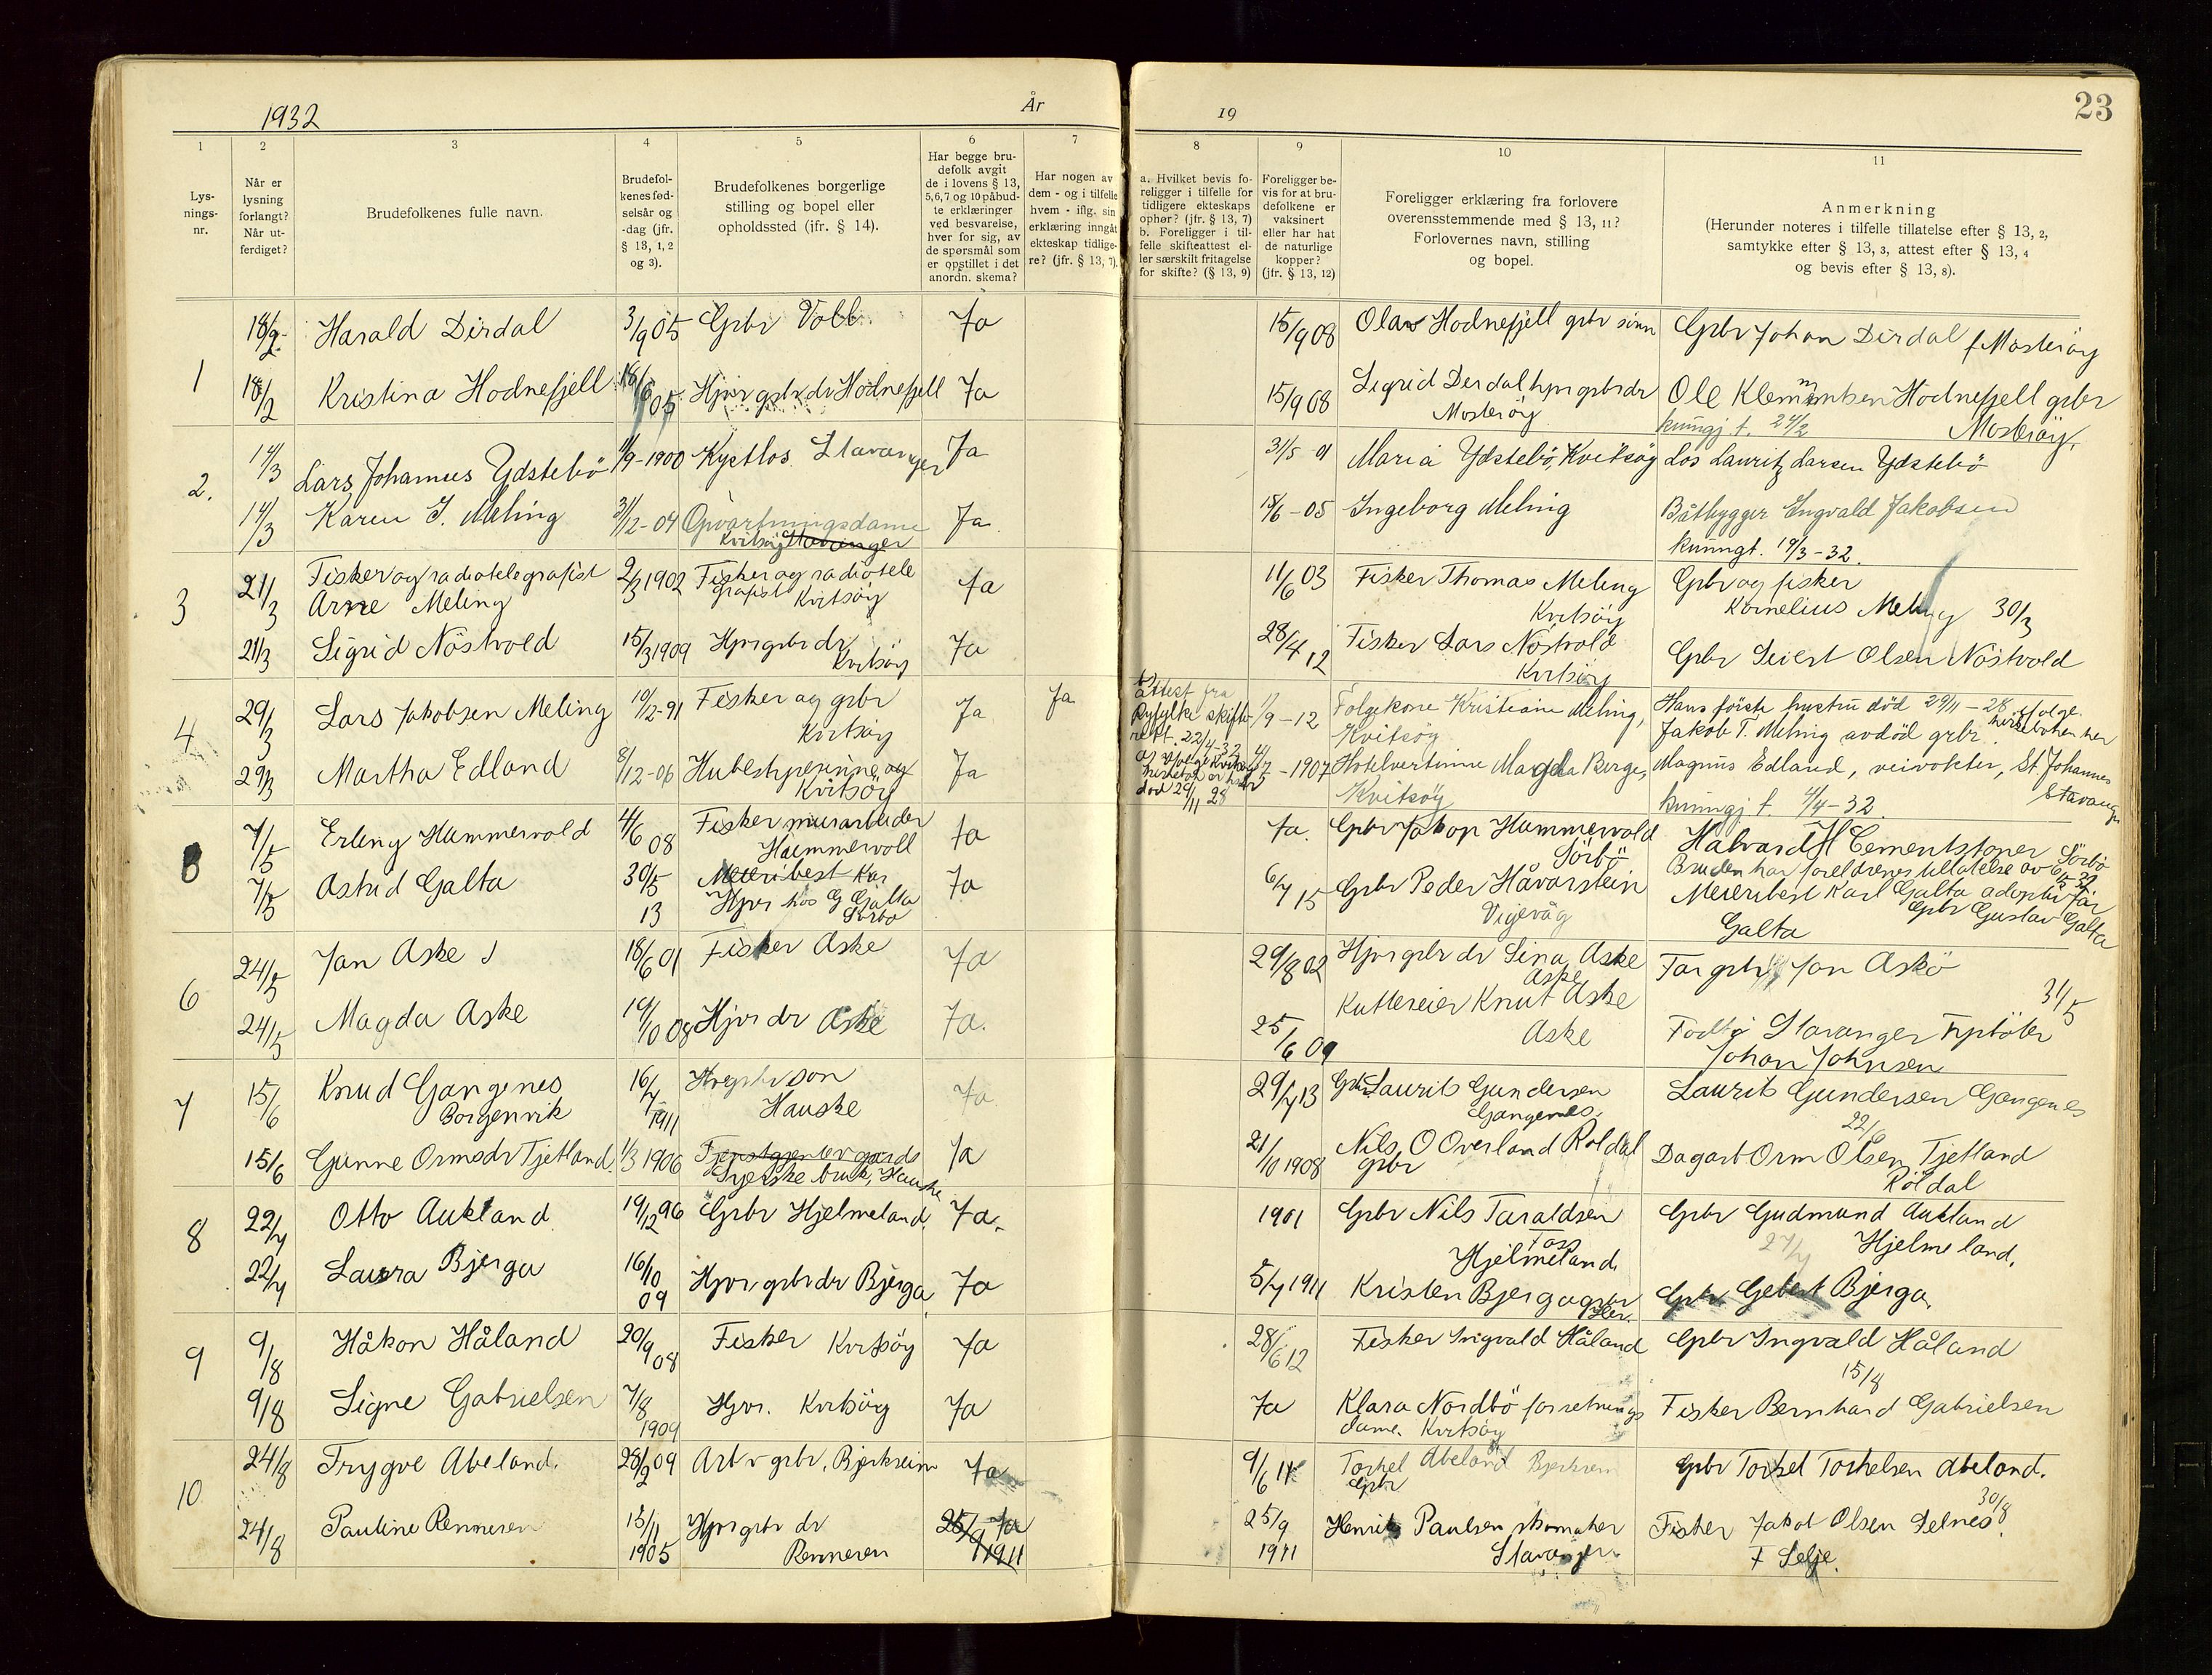 1932
År
19
23
1
2
3
4
5
6
7
8
9
10
11
Lys-
nings-
nr.
Når er
lysning
forlangt?
Når ut-
ferdiget?
Brudefolkenes fulle navn.
Brudefol-
kenes fød-
selsår og
-dag (jfr.
§ 13, 1, 2
og 3).
Brudefolkenes borgerlige
stilling og bopel eller
opholdssted (jfr. § 14).
Har begge bru-
defolk avgit
de i lovens § 13,
5,6,7 og 10 påbud-
te erklæringer
ved besvarelse,
hver for sig, av
de spørsmål som
er opstillet i det
anordn. skema?
Har nogen av
dem - og i tilfelle
hvem - iflg. sin
erklæring inngått
ekteskap tidlige-
re? (jfr. § 13, 7).
a. Hvilket bevis fo-
religger i tilfelle for
tidligere ekteskaps
ophør? (jfr. § 13, 7)
b. Foreligger i til-
felle skifteattest el-
ler særskilt fritagelse
for skifte? (§ 13, 9)
Foreligger be-
vis for at bru-
defolkene er
vaksinert
eller har hat
de naturlige
kopper?
(jfr. § 13, 12)
Foreligger erklæring fra forlovere
overensstemmende med § 13, 11?
Forlovernes navn, stilling
og bopel.
Anmerkning
(Herunder noteres i tilfelle tillatelse efter § 13, 2,
samtykke efter § 13, 3, attest efter § 13, 4
og bevis efter § 13, 8).
1
18/2 Harald Dirdal 3/9 05 Grbr Voll Ja 15/9 08 Olav Hodnefjell grbr sönn Grbr Johan Dirdal f Mosteröy
18/2 Kristina Hodnefjell 18/6 05 Hjvr grbr dr Hodnefjell Ja 15/9 08 Sigrid Dirdal hjvr grbr dr
Mosteröy
Ole Klemmentsen Hodnefjell grbr
kunngj f. 24/2 Mosteröy.
2.
14/3 Lars Johannes Ydstebö 11/9-1900 Kystlos Stavanger Ja 31/5 01 Maria Ydstebö, Kvitsöy Los Lauritz Larsen Ydstebö
14/3 Karen J. Meling 31/12-04 Opvartningsdame
Kvitsöy Stavanger
Ja 18/6-05 Ingeborg Meling Båtbygger Ingvald Jakobsen
kunngt. 19/3-32.
3
21/3 Fisker og radiotelegrafist
Arne Meling
2/3 1902 Fisker og radiotele
grafist Kvitsöy
Ja 11/6 03 Fisker Thomas Meling
Kvitsöy
Grbr og fisker
Kornelius Meling 30/3
21/3 Sigrid Nöstvold 15/3 1909 Hjvr grbr dr
Kvitsöy
Ja 28/4 12 Fisker Lars Nöstvold
Kvitsöy
Grbr Sivert Olsen Nöstvold
4
29/3 Lars Jakobsen Meling 10/2-91 Fisker og grbr
Kvitsöy
Ja Ja
attest fra
Ryfylke skifte-
rett. 22/4-32
död 29/11 28
9-12 Kristiane Meling,
Kvitsöy
Hans förste hustru död 29/11-28
Jakob T. Meling avdöd grbr.
29/3 Martha Edland 8/12-06
Kvitsöy
Ja 1907 Hotelvertinne Magda Berge,
Kvitsöy
Magnus Edland, veivokter, St. Johannes
Stavanger
kunngj f. 4/4-32.
7/5 Erling Hammervold 4/6 08 Fisker murarbeider
Hammervoll
Ja Ja. Grbr Jakop Hammervold
Sörbö
Halvard Cementstöper Sörbö
7/5 Astrid Galta 30/5 13 Meieribest Kar
Hjvr hos G Galta
Sörbö
Ja 6/7 15 Grbr Peder Håvarstein
Vigevåg
Bruden har foreldrenes tillatelse av
Meieribest Karl Galta adoptiv far
Grbr Gustav Galta
Galta
6
24/5 Jan Aske 18/6 01 Fisker Aske Ja 29/8 02 Hjvr grbr dr Sina Aske
Aske
Far grbr Jan Askö
31/5
24/5 Magda Aske 19/10 08 Hjvr dr Aske Ja. 25/6 09 Kuttereier Knut Aske
Aske
Född i Stavanger
Johan Johnsen
7
15/6 Knud Gangenes
Borgenvik
16/7 1911 son
Hauske
Ja 29/7 13 Grbr Laurits Gundersen
Gangenes.
Laurits Gundersen Gangenes
22/6
15/6 Gunne Ormsdr Tjetland 1/3 1906 bruk, Hauske Ja 21/10 1908 Nils O Overland Roldal
grbr
Dagarb Orm Olsen Tjetland
Röldal
8
22/7 Otto Aukland 19/12 96 Grbr Hjelmeland Ja. 1901 Grbr Nils Taraldsen
Hjelmeland
Grbr Gudmund Aukland
27/7 Hjelmeland.
22/7 Laura Bjerga 16/10 09 Hjvr, grbr dr Bjerga Ja 5/7 1911 Kristen Bjerga grbr Grbr Gebert Bjerga.
9
9/8 Håkon Håland 20/9 08 Fisker Kvitsöy Ja 28/6 12 Fisker Ingvald Håland Grbr Ingvald Håland
15/8
9/8 Signe Gabrielsen 7/8 1909 Hjvr. Kvitsöy Ja Ja Klara Nordbö forretnings
dame. Kvitsöy
Fisker Bernhard Gabrielsen
10
24/8 Trygve Abeland. 28/2 09 Arb v grbr, Bjerkreim Ja 9/6 11 Torkel Abeland Bjerkreim
Grbr
Grbr Torkel Torkelsen Abeland.
30/8
24/8 Pauline Rennesen 15/11 1905 Hjvr grbr dr
Rennesen
25/9 1911 Ja 25/9 1911 Henrik Paulsen skomaker
Stavanger.
Fisker Jakob Olsen Selnes.
f Selje.